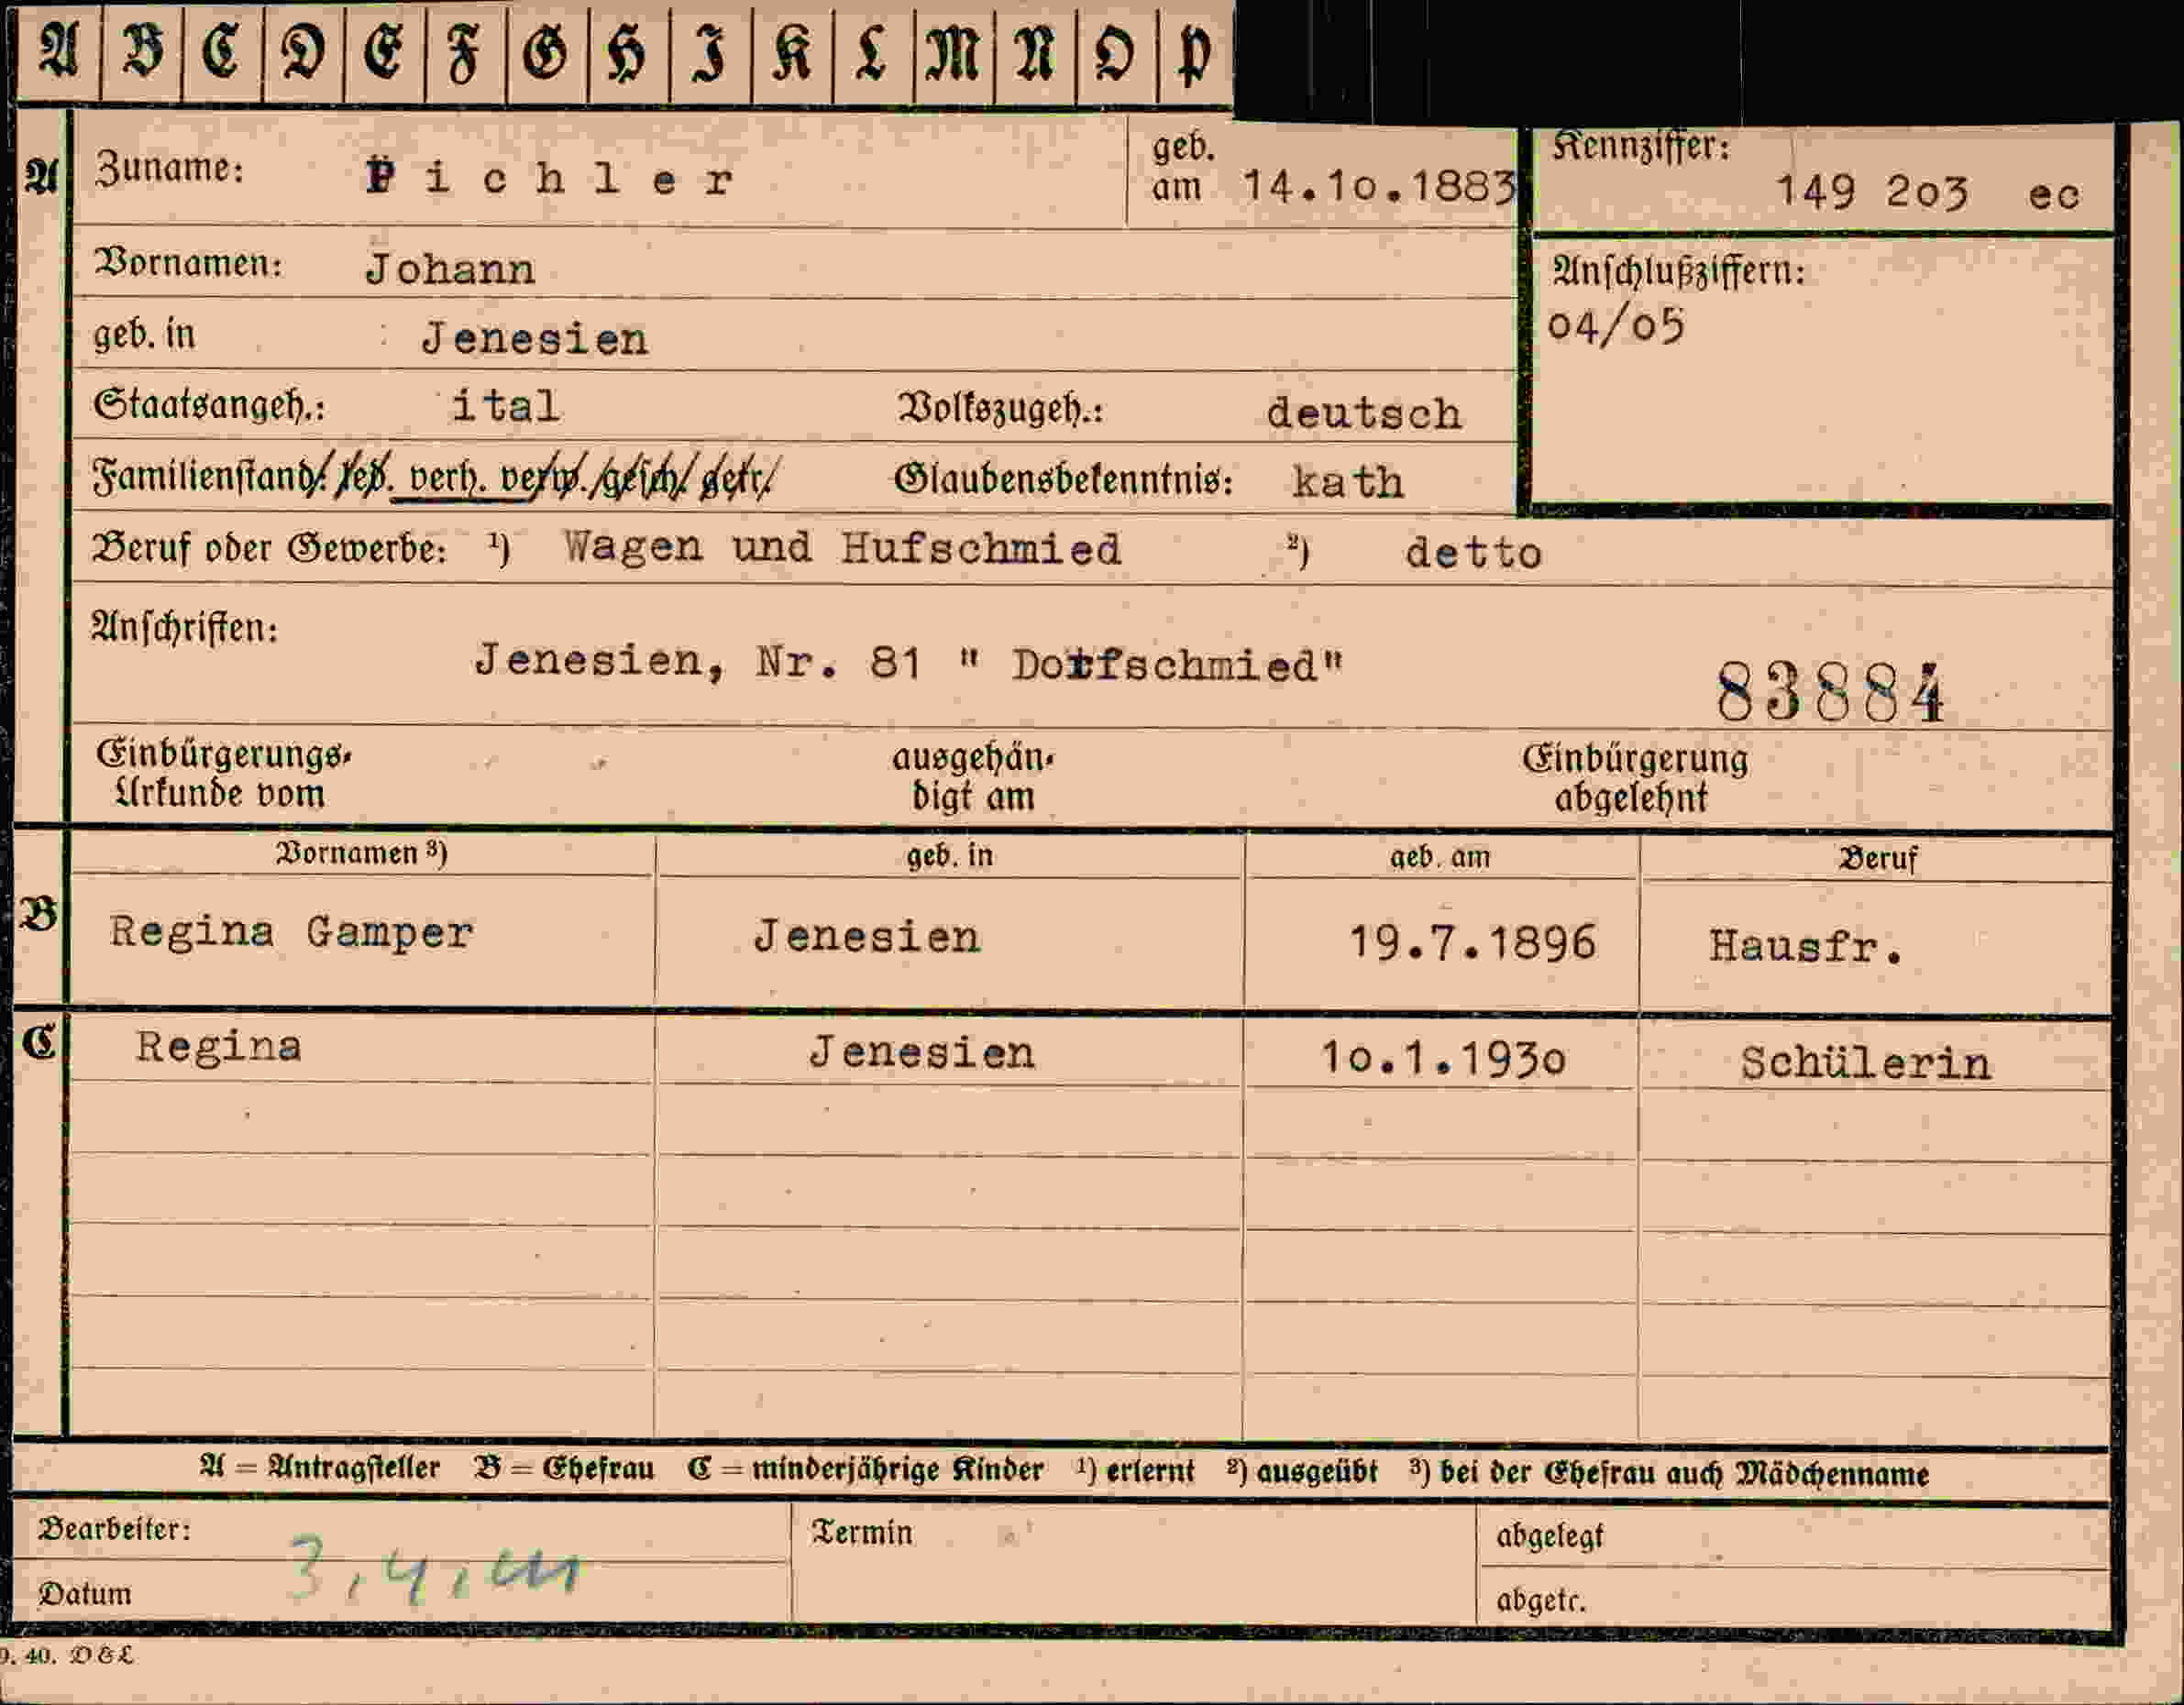 A B C D E F G H I K L M N O P
A Zuname: Pichler geb. am 14.10.1883 Kennziffer: 149 203 ec
Vornamen: Johann Anschlußziffern:
geb. in Jenesien 04/05
Staatsangeh.: ital Volkszugeh.: deutsch
Familienstand: led. verh. verw. gesch. getr. Glaubensbekenntnis: kath
Beruf oder Gewerbe: ¹) Wagen und Hufschmied ²) detto
Anschriften:
Jenesien, Nr. 81 " Dorfschmied" 83884
Einbürgerungs- ausgehän- Einbürgerung
Urkunde vom digt am abgelehnt
Vornamen ³) geb. in geb. am Beruf
B Regina Gamper Jenesien 19.7.1896 Hausfr.
C Regina Jenesien 10.1.1930 Schülerin
A = Antragsteller B = Ehefrau C = minderjährige Kinder ¹) erlernt ²) ausgeübt ³) bei der Ehefrau auch Mädchenname
Bearbeiter: Termin abgelegt
3.4.
Datum abgetr.
40. D&L